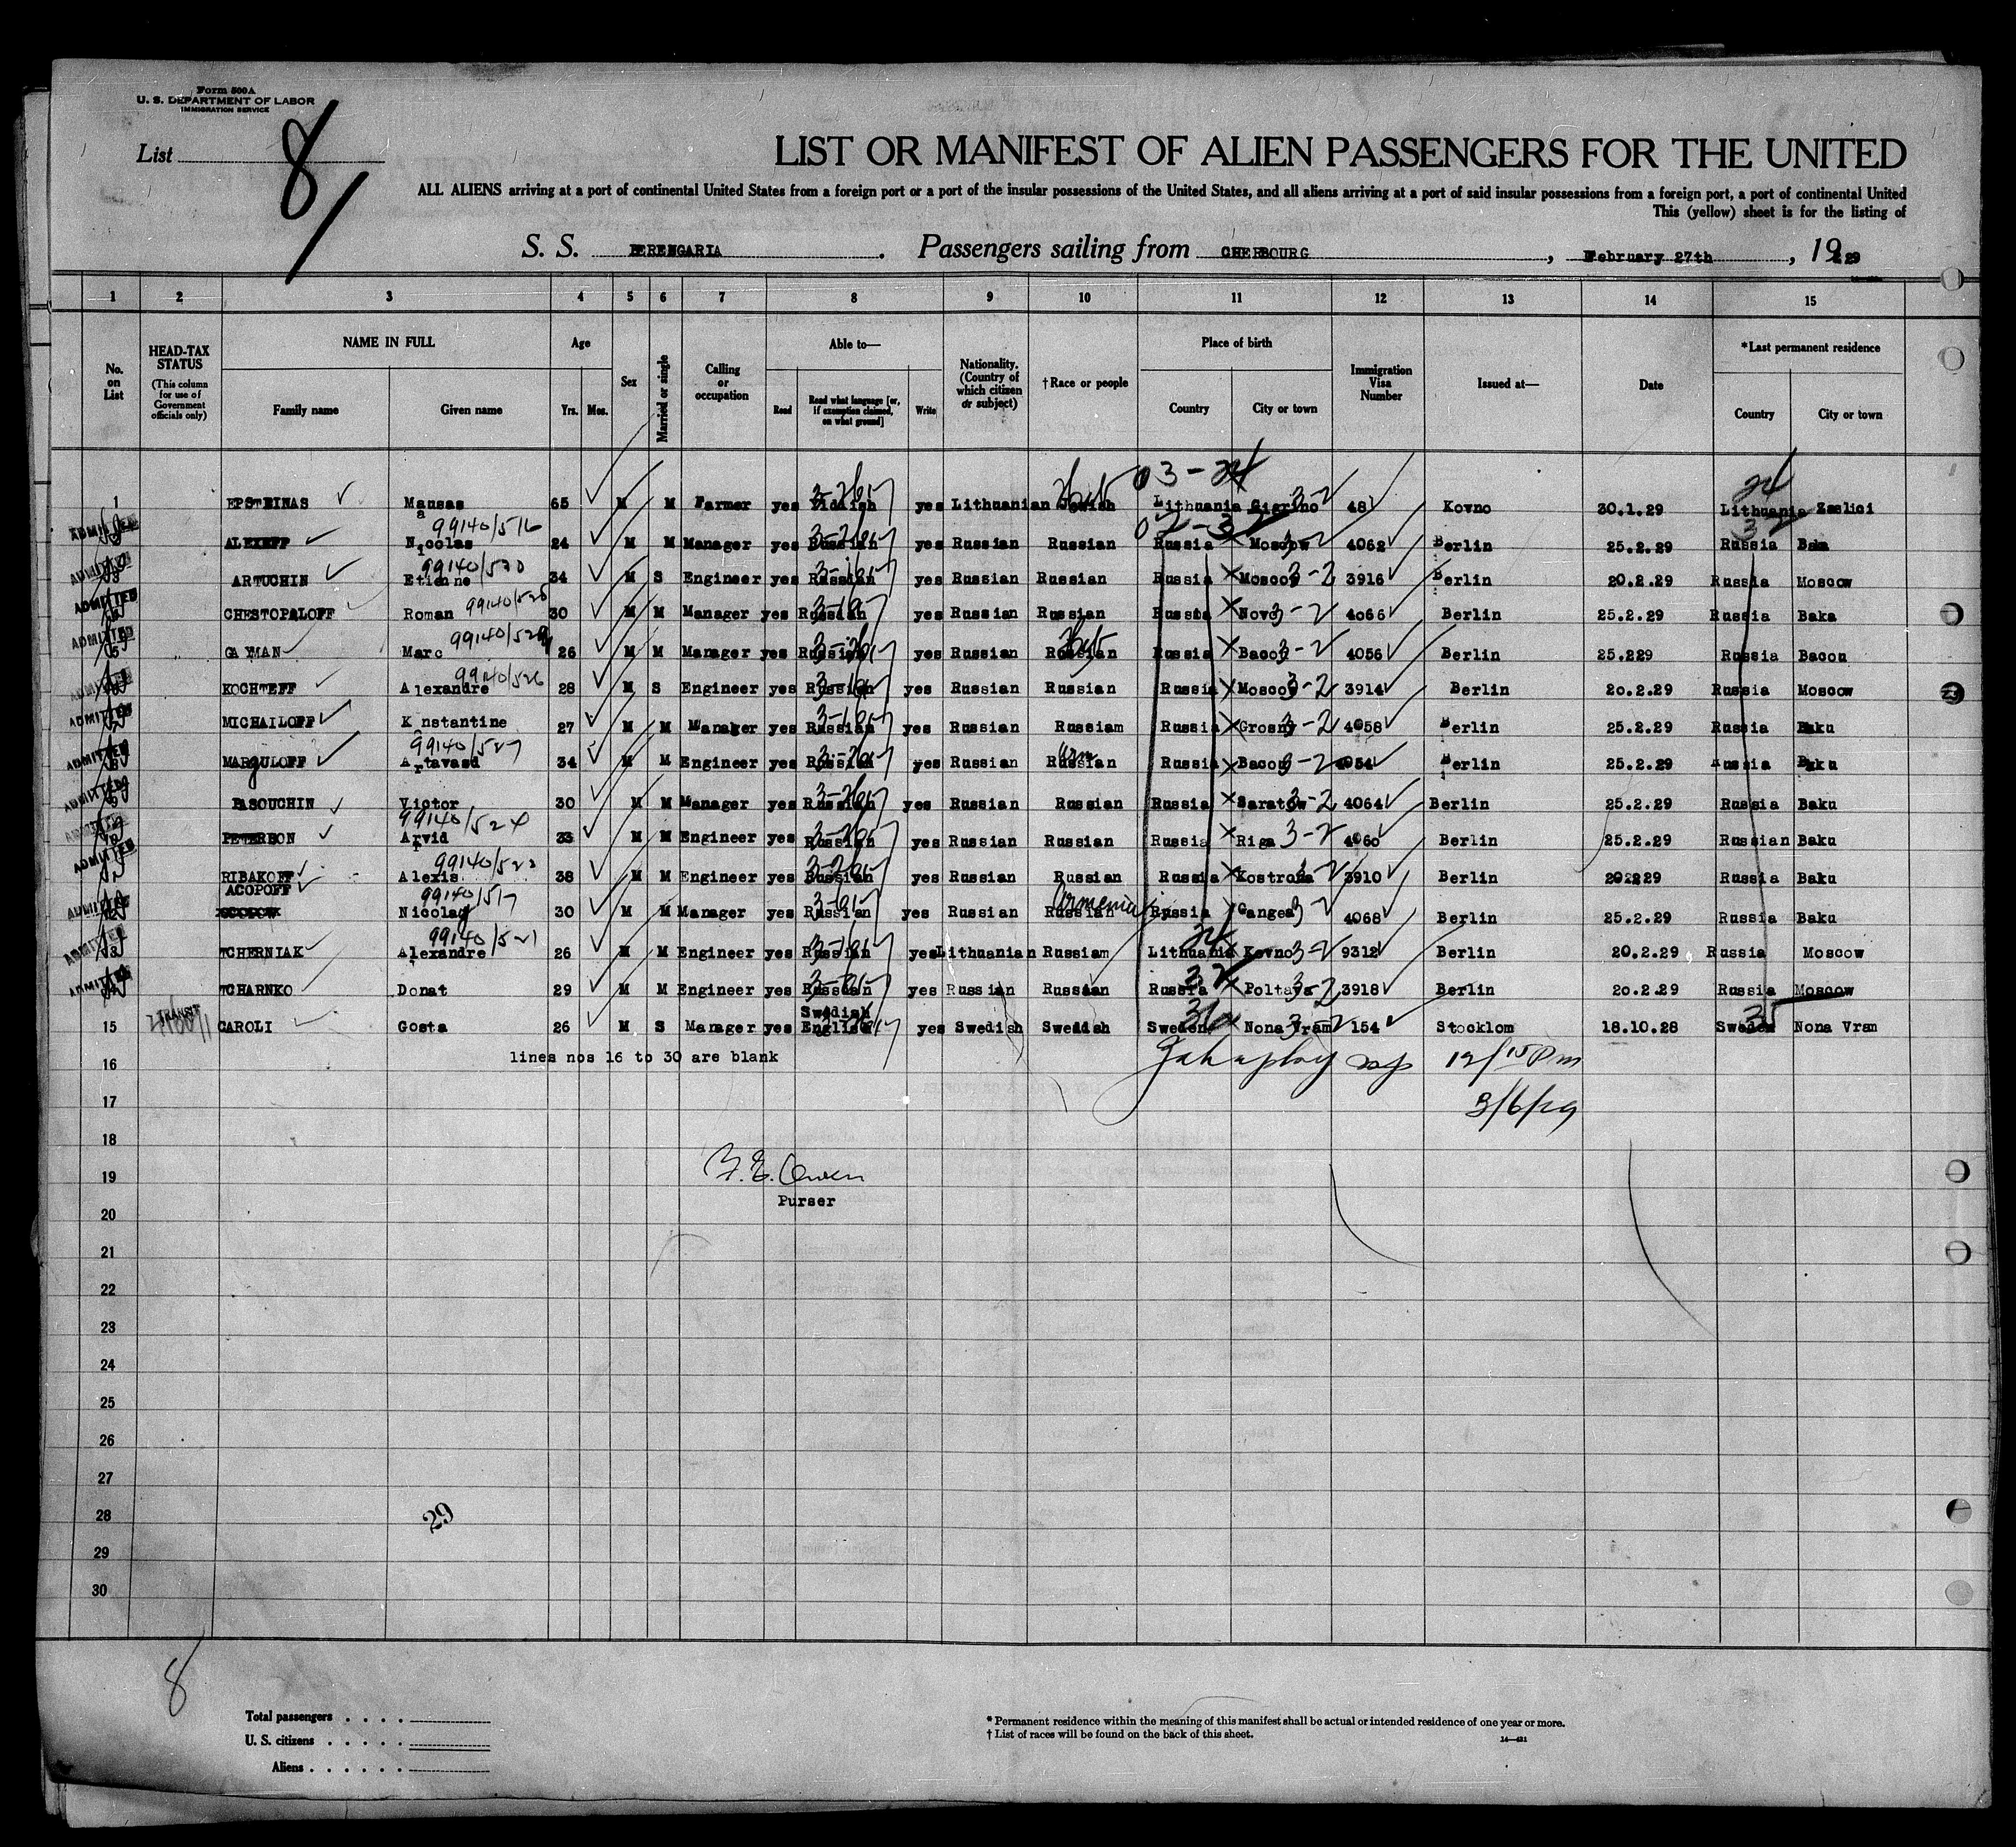 Form 500A
U. S. DEPARTMENT OF LABOR
IMMIGRATION SERVICE
List 8
LIST OR MANIFEST OF ALIEN PASSENGERS FOR THE UNITED
ALL ALIENS arriving at a port of continental United States from a foreign port or a port of the insular possessions of the United States, and all aliens arriving at a port of said insular possessions from a foreign port, a port of continental United
This (yellow) sheet is for the listing of
S. S. BERENGARIA. Passengers sailing from CHERBOURG, February 27th, 1929
1 2 3 4 5 6 7 8 9 10 11 12 13 14 15
No. on List
HEAD-TAX STATUS (This column for use of Government officials only)
NAME IN FULL Family name Given name
Age Yrs. Mos.
Sex
Married or single
Calling or occupation
Able to— Read Read what language [or, if exemption claimed, on what ground] Write
Nationality. (Country of which citizen or subject)
†Race or people
Place of birth Country City or town
Immigration Visa Number
Issued at—
Date
*Last permanent residence Country City or town
03-24 24
1 EPSTEINAS Mausas 65 M M Farmer yes Yiddish yes Lithuanian Jewish Lithuania 48 Kovno 30.1.29 Lithuania Zaslici
99140/516
ADMITTED ALEXEFF Nicolas 24 M M Manager yes Russian yes Russian Russian Russia Moscow 3-2 4062 Berlin 25.2.29 Russia Baka
99140/520
ADMITTED 3 ARTUCHIN Etienne 34 M S Engineer yes Russian yes Russian Russian Russia Moscow 3-2 3916 Berlin 20.2.29 Russia Moscow
ADMITTED CHESTOPALOFF Roman 99140/525 30 M M Manager yes Russian yes Russian Russian Russia Novo 3-2 4066 Berlin 25.2.29 Russia Baka
ADMITTED 5 GAYMAN Marc 99140/529 26 M M Manager yes Russian yes Russian Russian Russia Bacou 3-2 4056 Berlin 25.229 Russia Bacou
99140/526
ADMITTED KOCHTEFF Alexandre 28 M S Engineer yes Russian yes Russian Russian Russia Moscow 3-2 3914 Berlin 20.2.29 Russia Moscow
ADMITTED MICHAILOFF K nstantine 27 M M Manager yes Russian yes Russian Russiam Russia Grosny 3-2 4058 Berlin 25.2.29 Russia Baku
99140/527
ADMITTED MARGULOFF Artavasd 34 M M Engineer yes Russian yes Russian Russian Russia Bacou 3-2 4054 Berlin 25.2.29 Russia Baku
ADMITTED PASOUCHIN Victor 30 M M Manager yes Russian yes Russian Russian Russia Saratow 3-2 4064 Berlin 25.2.29 Russia Baku
99140/524
ADMITTED PETERSON Arvid 33 M M Engineer yes Russian yes Russian Russian Russia Riga 3-2 4060 Berlin 25.2.29 Russian Baku
99140/522
ADMITTED RIBAKOFF Alexis 38 M M Engineer yes Russian yes Russian Russian Russia Kostroma 3-2 3910 Berlin 202229 Russia Baku
ACOPOFF 99140/517 Armenian
ADMITTED Nicolay 30 M M Manager yes Russian yes Russian Russian Russia Gangea 3-2 4068 Berlin 25.2.29 Russia Baku
99140/521 24
ADMITTED TCHERNIAK Alexandre 26 M M Engineer yes Russian yes Lithuanian Russiam Lithuania Kovno 3-2 9312 Berlin 20.2.29 Russia Moscow
ADMITTED TCHARNKO Donat 29 M M Engineer yes Russian yes Russian Russian Russia Poltava 3-2 3918 Berlin 20.2.29 Russia Moscow
TRANSIT Swedish
15 CAROLI Gosta 26 M S Manager yes English yes Swedish Swedish Sweden Nona Vram 154 Stocklom 18.10.28 Sweden Nona Vram
16 lines nos 16 to 30 are blank 12/15 Pm
17 3/6/29
18
19 F. E. Owen
Purser
20
21
22
23
24
25
26
27
28 29
29
30
8
Total passengers . . . .
U. S. citizens . . . . .
Aliens . . . . . .
* Permanent residence within the meaning of this manifest shall be actual or intended residence of one year or more.
† List of races will be found on the back of this sheet.
14—421